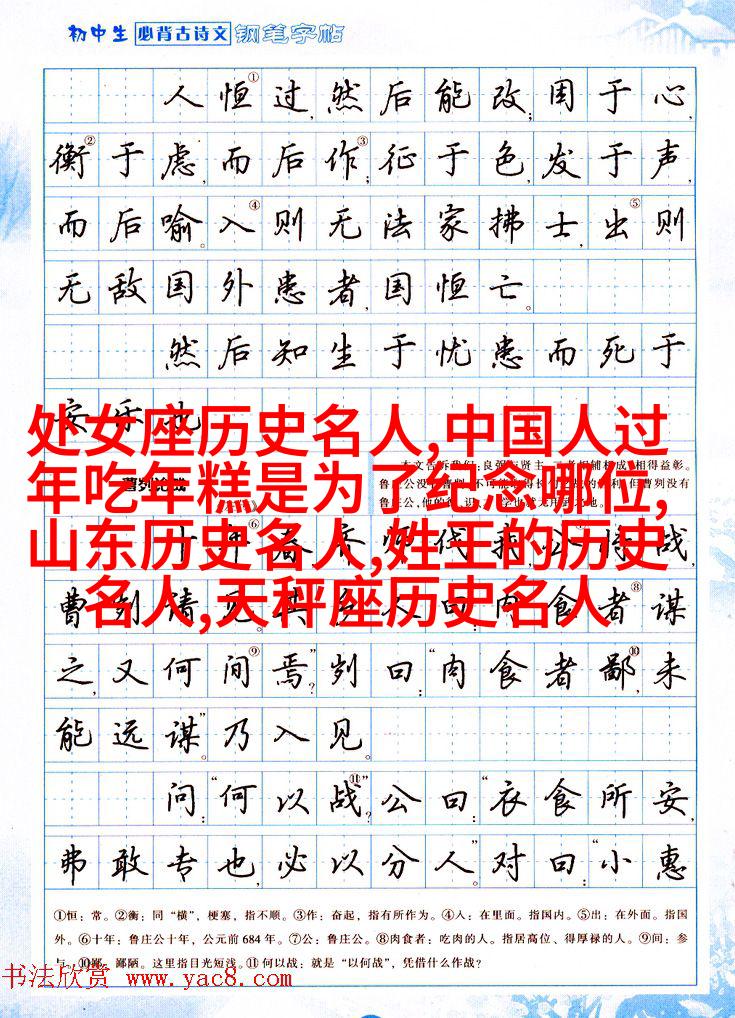 初中生 必背古诗文 钢笔字帖
人恒①过,然后能改;困于心,
衡②于虑,而后作③;征于色,发于声,
而后喻。入④则无法家拂士,出⑤则
无敌国外患者,国恒亡。
然后知生于忧患而死于
安乐也
处女座历史名人,中国人过
年吃年糕是为了纪念哪位,
山东历史名人,姓王的历史
名人,天秤座历史名人
曹刿论战
十年⑥春
战,
曹刿请见。其乡人曰:“肉食者⑧谋
之,又何间⑨焉?”刿曰:“肉食者鄙⑩,未
能远谋。”乃入见。
问:“何以战⑪?”公曰:“衣食所安,
弗敢专也,必以分人。”对曰:“小惠
①恒:常。②衡:同“横”,梗塞,指不顺。③作:奋起,指有所作为。④入:在里面。指国内。⑤出:在外面。指国
外。⑥十年:鲁庄公十年,公元前684年。⑦公:鲁庄公。⑧肉食者:吃肉的人。指居高位、得厚禄的人。⑨间:参
与。⑩鄙:鄙陋。这里指目光短浅。⑪何以战:就是“以何战”,凭借什么作战?
书法欣赏 www.yac8.com